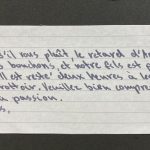 s'il vous plaît, le retard d'A
bouchons, et notre fils est
Il est resté deux heures à le
trottoir. Veuillez bien compre
passion.